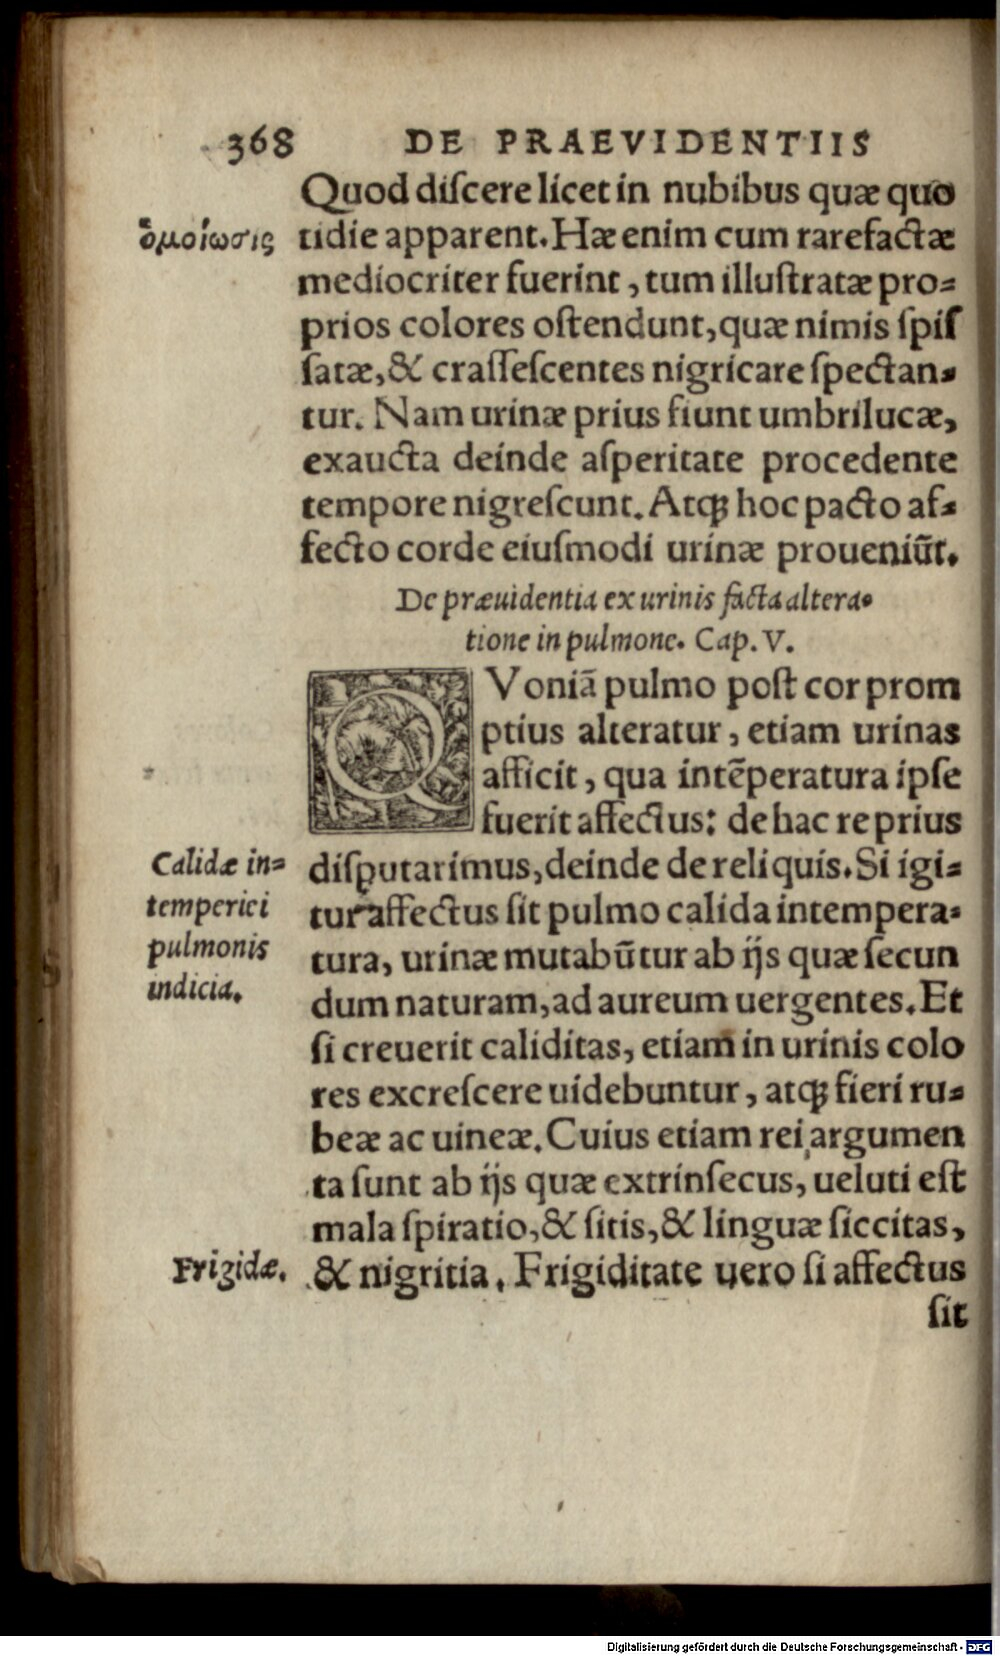 368 DE PRAEVIDENTIIS
Quod diſcere licet in nubibus quæ quo
ὁμοίωσις
tidie apparent. Hæ enim cum rarefactæ
mediocriter fuerint, tum illuſtratæ pro-
prios colores oſtendunt, quæ nimis ſpiſ
ſatæ, & craſſeſcentes nigricare ſpectan-
tur. Nam urinæ prius fiunt umbrilucæ,
exaucta deinde aſperitate procedente
tempore nigreſcunt. Atq; hoc pacto af-
fecto corde eiuſmodi urinæ proueniūt.
De præuidentia ex urinis facta altera-
tione in pulmone. Cap. V.
QVoniā pulmo poſt cor prom
ptius alteratur, etiam urinas
afficit, qua intēperatura ipſe
fuerit affectus: de hac re prius
Calidæ in-
temperiei
pulmonis
indicia.
diſputarimus, deinde de reliquis. Si igi-
tur affectus ſit pulmo calida intempera-
tura, urinæ mutabūtur ab ijs quæ ſecun
dum naturam, ad aureum uergentes. Et
ſi creuerit caliditas, etiam in urinis colo
res excreſcere uidebuntur, atq; fieri ru-
beæ ac uineæ. Cuius etiam rei argumen
ta ſunt ab ijs quæ extrinſecus, ueluti eſt
mala ſpiratio, & ſitis, & linguæ ſiccitas,
Frigidæ.
& nigritia. Frigiditate uero ſi affectus
ſit
Digitalisierung gefördert durch die Deutsche Forschungsgemeinschaft - DFG